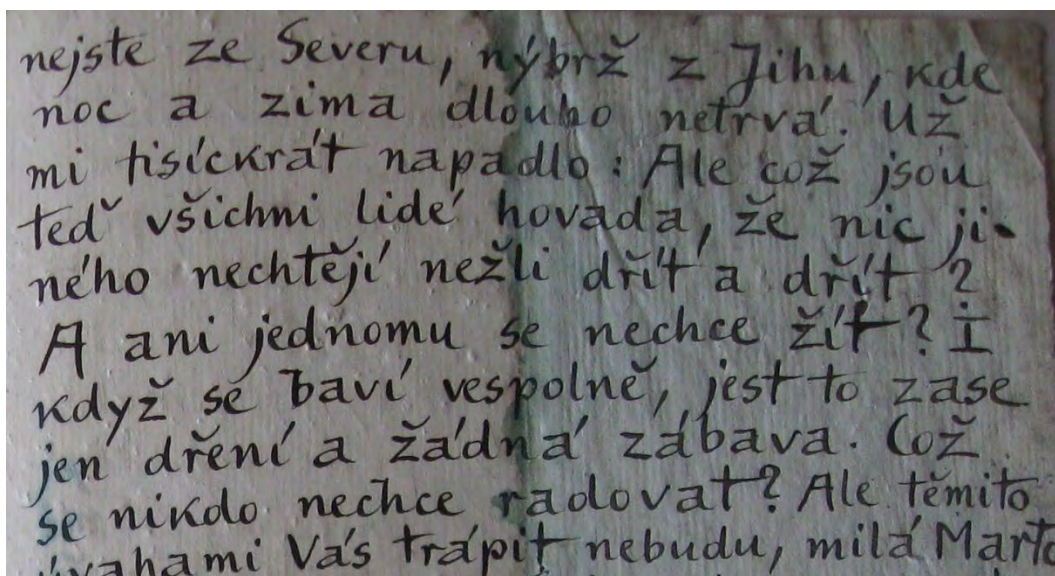 nejste ze Severu, nýbrž z Jihu, kde
noc a zima dlouho netrvá. Už
mi tisíckrát napadlo: Ale což jsou
teď všichni lidé hovada, že nic ji-
ného nechtějí nežli dřít a dřít?
A ani jednomu se nechce žít? I
když se baví vespolně, jest to zase
jen dření a žádná zábava. Což
se nikdo nechce radovat? Ale těmito
úvahami Vás trápit nebudu, milá Marto